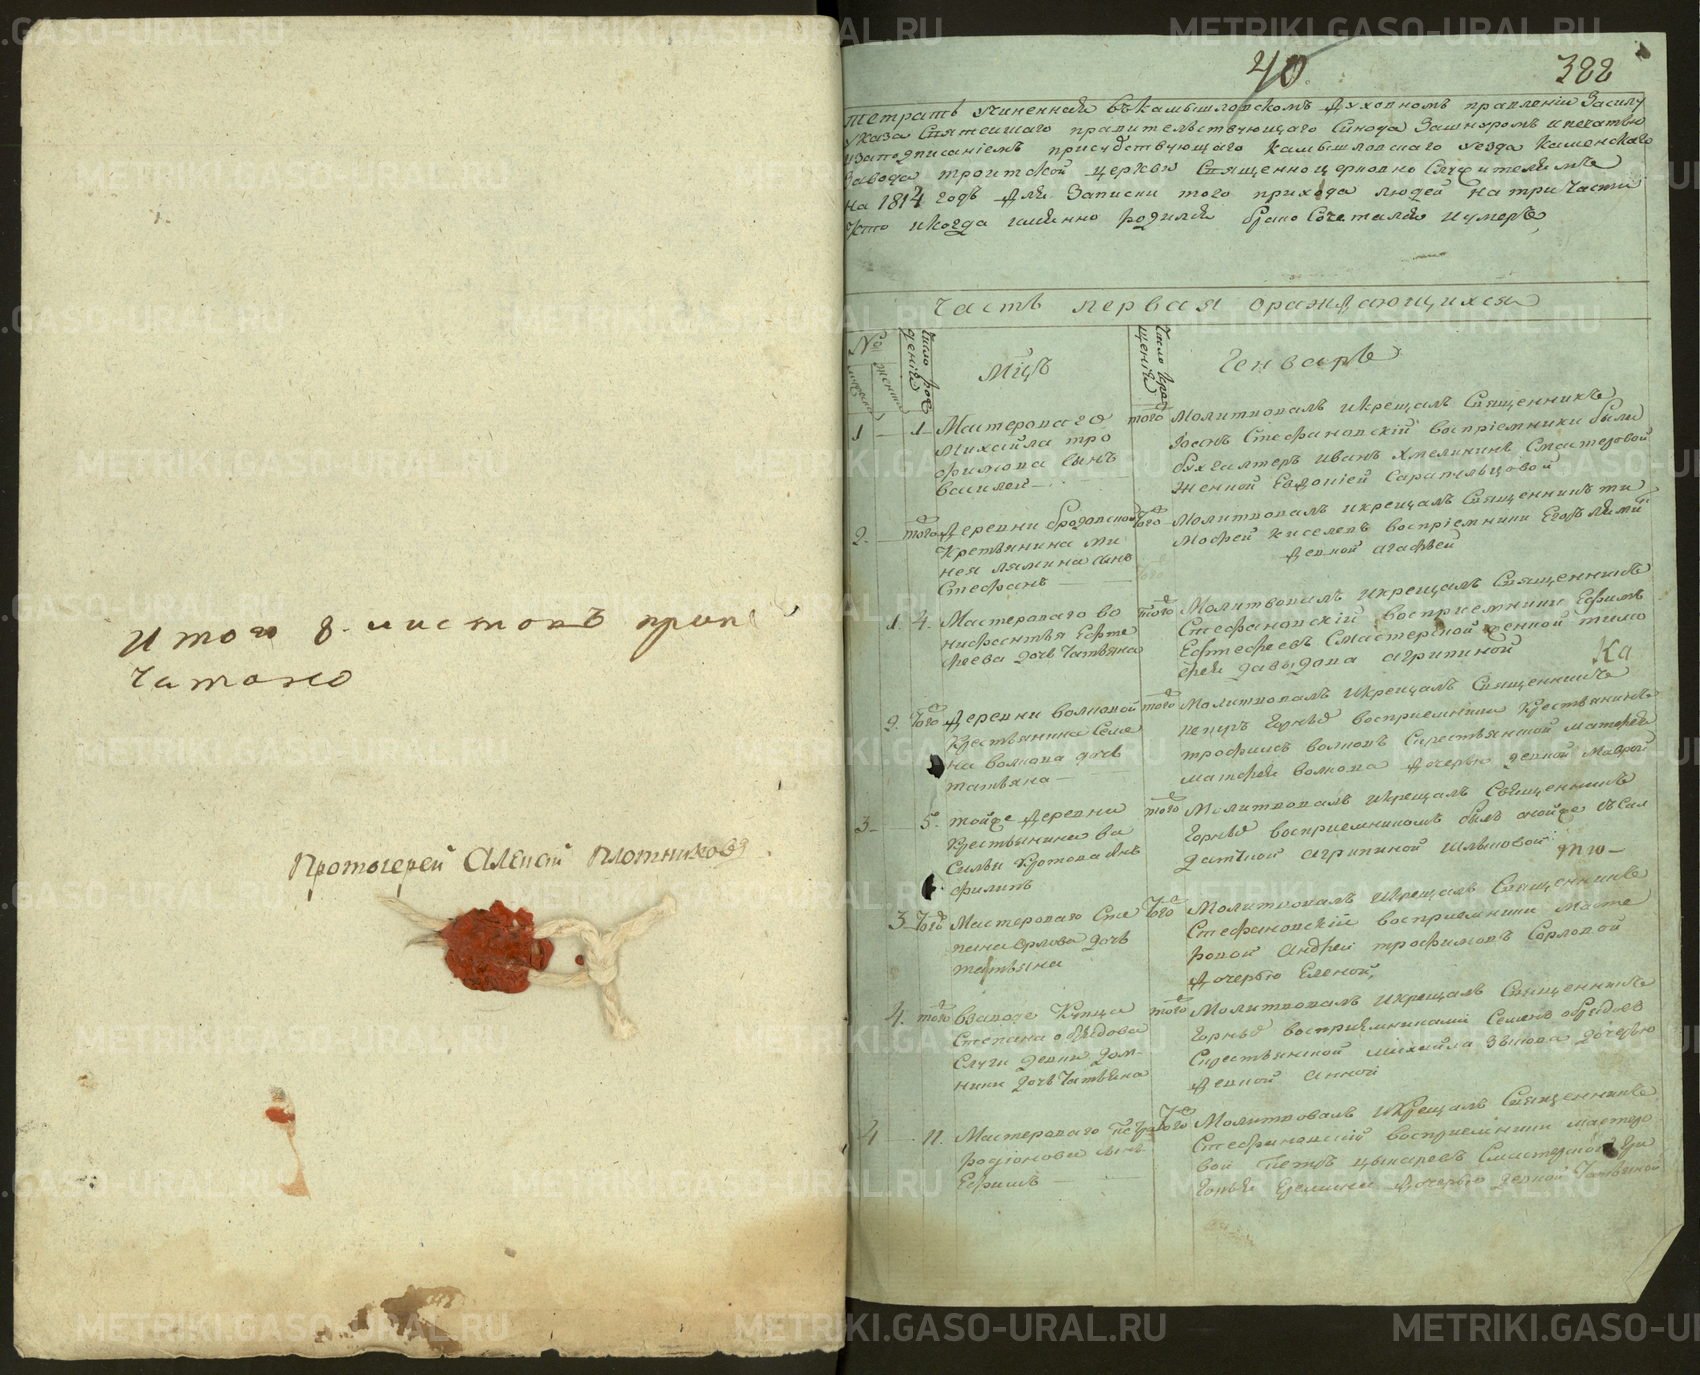 Итого 8. листовъ припе
чатано
Протоиерей Алексей Плотниковъ
40. 388
тетрать учиненная въ Камышловскомъ Духовномъ правлении засилу
указа Святеишаго правительствующаго Синода зашнуромъ и печатью
изаподписаниемъ присудствующаго Камышловскаго уезда Каменскаго
завода троитской церкви Священно церковно Служителямъ
на 1814 годъ для записки того прихода людей на три части
кто икогда имянно родился брако Сочетался иумеръ
Часть первая ораждающихся
№
число рождения
Мцъ
число крещения
Генварь
1 1 Мастероваго
Михайла тро
фимова Сынъ
василей
того Молитвовалъ икрещалъ Священникъ
Иоанъ Стефановский восприемники были
бухгалтеръ иванъ Хмелининъ Смастеровой
женкой Евдокией Сарапульцовой
2. того Деревни бродовской
крестьянина ми
нея лямина Сынъ
Стефанъ
того Молитвовалъ икрещалъ Священникъ ти
мофей киселевъ восприемники Егоръ лямин
девкой агафьей
1 4. Мастероваго во
нифантья Ефте
феева дочь Татьяна
того Молитвовалъ икрещалъ Священникъ
Стефановский восприемники Ефимъ
Ефтефеевъ Смастерской женкой тимо
фея давыдова агрипиной
Ка
2. того Деревни волковой
крестьянина Семе
на волкова дочь
татьяна
того Молитвовалъ икрещалъ Священникъ
петръ Горныхъ восприемники крестьянинъ
трофимъ волковъ Скрестьянской матфея
матфея волкова дочерью девкой маврой
3 5. тойже деревни
крестьянина ва
силья кротова Сынъ
филипъ
того Молитвовалъ икрещалъ Священникъ
Горныхъ восприемникомъ былъ онойже Ссол
датской агрипиной
3 того Мастероваго Сте
пана орлова дочь
татьяна
того Молитвовалъ икрещалъ Священникъ
Стефановский восприемники масте
ровой Андрей трофимовъ Сорловой
дочерью Еленой,
4. того взаводе купца
Степана обрядова
Слуги девки дом-
ники дочь Татьяна
того Молитвовалъ икрещалъ Священникъ
Горныхъ восприемниками Семенъ обрядовъ
Скрестьянской михайла дочерью
девкой анной
4 11. Мастероваго петра
родионова сынъ
Ефимъ
того Молитвовалъ икрещалъ Священникъ
Стефановский восприемники мастеро
вой петръ Смастерской гри
горья дочерью девкой Татьяной
METRIKI.GASO-URAL.RU